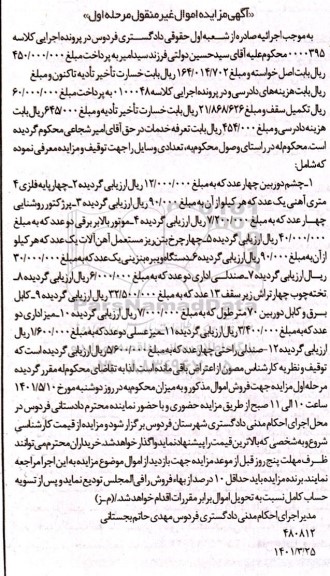 «آگهی مزایده اموال غیر منقول مرحله اول»
به موجب اجرائیه صادره از شعبه اول حقوقی دادگستری فردوس در پرونده اجرایی کلاسه
۰۰۰۰۳۹۵ محکوم علیه آقای سیدحسین دولتی فرزند سیدامیر به پرداخت مبلغ ۴۵۰/۰۰۰/۰۰۰
ریال بابت اصل خواسته و مبلغ ۱۶۴/۰۱۴/۷۰۲ ریال بابت خسارت تأخیر تأدیه تاکنون و مبلغ
ریال بابت هزینه‌های دادرسی و در پرونده اجرایی کلاسه ۰۱۰۰۰۴۸ به پرداخت مبلغ ۶۰/۰۰۰/۰۰۰
ریال تکمیل سقف و مبلغ ۲۱/۸۶۸/۶۲۶ ریال بابت خسارت تأخیر تأدیه و مبلغ ۶۴۵/۰۰۰ ریال بابت
هزینه دادرسی و مبلغ ۴۵۴/۰۰۰ ریال بابت تعرفه خدمات در حق آقای امیر شجاعی محکوم گردیده
است. محکوم له در راستای وصول محکوم به، تعدادی وسایل را جهت توقیف و مزایده معرفی نموده
که شامل:
۱-چشم دوربین چهار عدد که به مبلغ ۱۲/۰۰۰/۰۰۰ ریال ارزیابی گردیده ۲-چهارپایه فلزی ۴
متری آهنی یک عدد که هر کیلو از آن به مبلغ ۹۰/۰۰۰ ریال ارزیابی گردیده ۳-پرژکتور روشنایی
چهار عدد که به مبلغ ۷/۲۰۰/۰۰۰ ریال ارزیابی گردیده ۴-موتور بالابر برقی دو عدد که به مبلغ
۴۰/۰۰۰/۰۰۰ ریال ارزیابی گردیده ۵-چهارچرخ بتن ریز مستعمل آهن آلات یک عدد که هر کیلو
از آن به مبلغ ۹۰/۰۰۰ ریال ارزیابی گردیده ۶-دستگاه ویبره بنزینی یک عدد که به مبلغ ۳۰/۰۰۰/۰۰۰
ریال ارزیابی گردیده ۷-صندلی اداری دو عدد که به مبلغ ۶/۰۰۰/۰۰۰ ریال ارزیابی گردیده ۸-
تخته چوب چهارتراش زیر سقف ۱۲ عدد که به مبلغ ۳۲/۵۰۰/۰۰۰ ریال ارزیابی گردیده ۹-کابل
برق و کابل دوربین ۷۰ متر طول که به مبلغ ۷/۰۰۰/۰۰۰ ریال ارزیابی گردیده ۱۰-میز اداری دو
عدد که به مبلغ ۳/۴۰۰/۰۰۰ ریال ارزیابی گردیده ۱۱-میز عسلی دو عدد که به مبلغ ۱/۶۰۰/۰۰۰ ریال
ارزیابی گردیده ۱۲-صندلی راحتی چهار عدد که به مبلغ ۵/۶۰۰/۰۰۰ ریال ارزیابی گردیده است که
توقیف و نظریه کارشناس مصون از اعتراض باقی مانده است. لذا به تقاضای محکوم له مقرر گردیده
مرحله اول مزایده جهت فروش اموال مذکور و به میزان محکوم به در روز دوشنبه مورخ ۱۴۰۱/۵/۱۰
ساعت ۱۰ الی ۱۱ صبح از طریق مزایده حضوری و با حضور نماینده محترم دادستانی فردوس در
محل اجرای احکام مدنی دادگستری شهرستان فردوس برگزار شود و مزایده از قیمت کارشناسی
شروع و به شخصی که بالاترین قیمت را پیشنهاد نماید واگذار خواهد شد. خریداران محترم می‌توانند
ظرف مهلت پنج روز قبل از موعد مزایده جهت بازدید از اموال موضوع مزایده به این اجرا مراجعه
نمایند. برنده مزایده باید حداقل ۱۰ درصد از بهاء فروش را فی‌المجلس تودیع نماید و پس از تسویه
حساب کامل نسبت به تحویل اموال برابر مقررات اقدام خواهد شد./(م-ز)
مدیر اجرای احکام مدنی دادگستری فردوس مهدی حاتم بجستانی
۴۸۰۸۱۲
۱۴۰۱/۳/۲۵